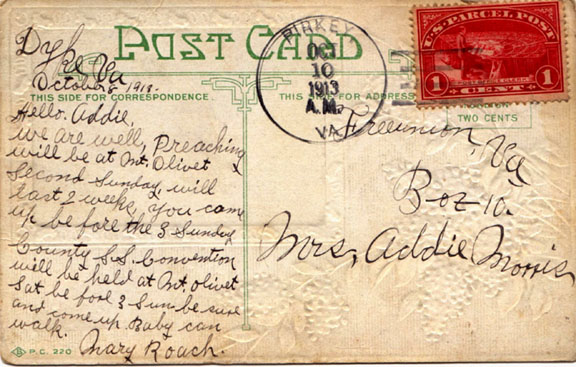 POST CARD
Dyke Va
October 8, 1913.
THIS SIDE FOR CORRESPONDENCE.
Hello. Addie,
we are well, Preaching
will be at Mt. Olivet
Second Sunday, will
last 2 weeks, you come
up be fore the 3 Sunday
County S.S. Convention
will be held at Mt. Olivet
Sat be fore 3 Sun be sure
and come up. Baby can
walk.
Mary Roach.
B P.C. 220
PIRKEY
OCT
10
1913
A.M.
VA.
U.S. PARCEL POST
POST OFFICE CLERK
1 CENT 1
THIS SIDE FOR ADDRESS
TWO CENTS
Freeunion, Va
Box 10.
Mrs, Addie Morris,